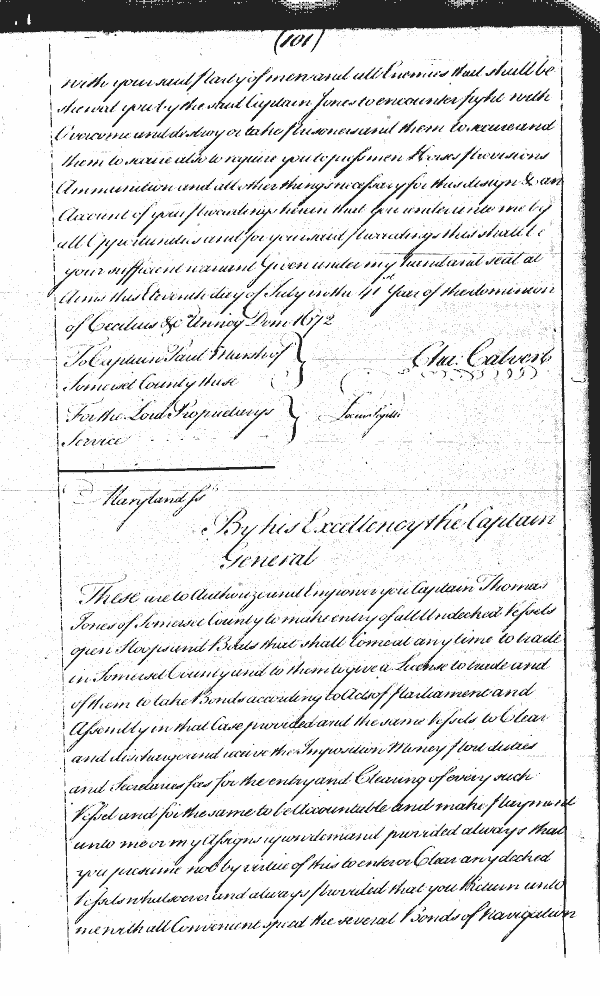 (101)
with your said party of men and all Enemies that shall be
shewed you by the said Captain Jones to encounter fight with
Overcome and destroy or take prisoners and them to secure and
them to secure also to require you to press men Horses provisions
Ammunition and all other things necessary for this design & an
Account of your proceedings herein that you render unto me by
all Oppertunities and for your said proceedings this shall be
your sufficient warrant Given under my hand and seal at
Arms this Eleventh day of July in the 41st Year of the dominion
of Cecilius &c Annoq Dom 1672
To Captain Paul Marsh of
Somerset County these
For the Lord Proprietarys
Service
Cha: Calvert
Locus Sigilli
Maryland ss
By his Excellency the Captain
General
These are to Authorize and Empower you Captain Thomas
Jones of Somerset County to make entry of all Undecked Vessels
open Sloops and Boats that shall Come at any time to trade
in Somerset County and to them to give a License to trade and
of them to take Bonds according to Acts of Parliament and
Assembly in that Case provided and the same Vessels to Clear
and discharge and receive the Imposition Money Port duties
and Secretarys fees for the entry and Clearing of every such
Vessel and for the same to be Accountable and make payment
unto me or my Assigns upon demand provided always that
you presume not by virtue of this to enter or Clear any decked
Vessels whatsoever and always provided that you Return unto
me with all Convenient speed the several Bonds of Navigation